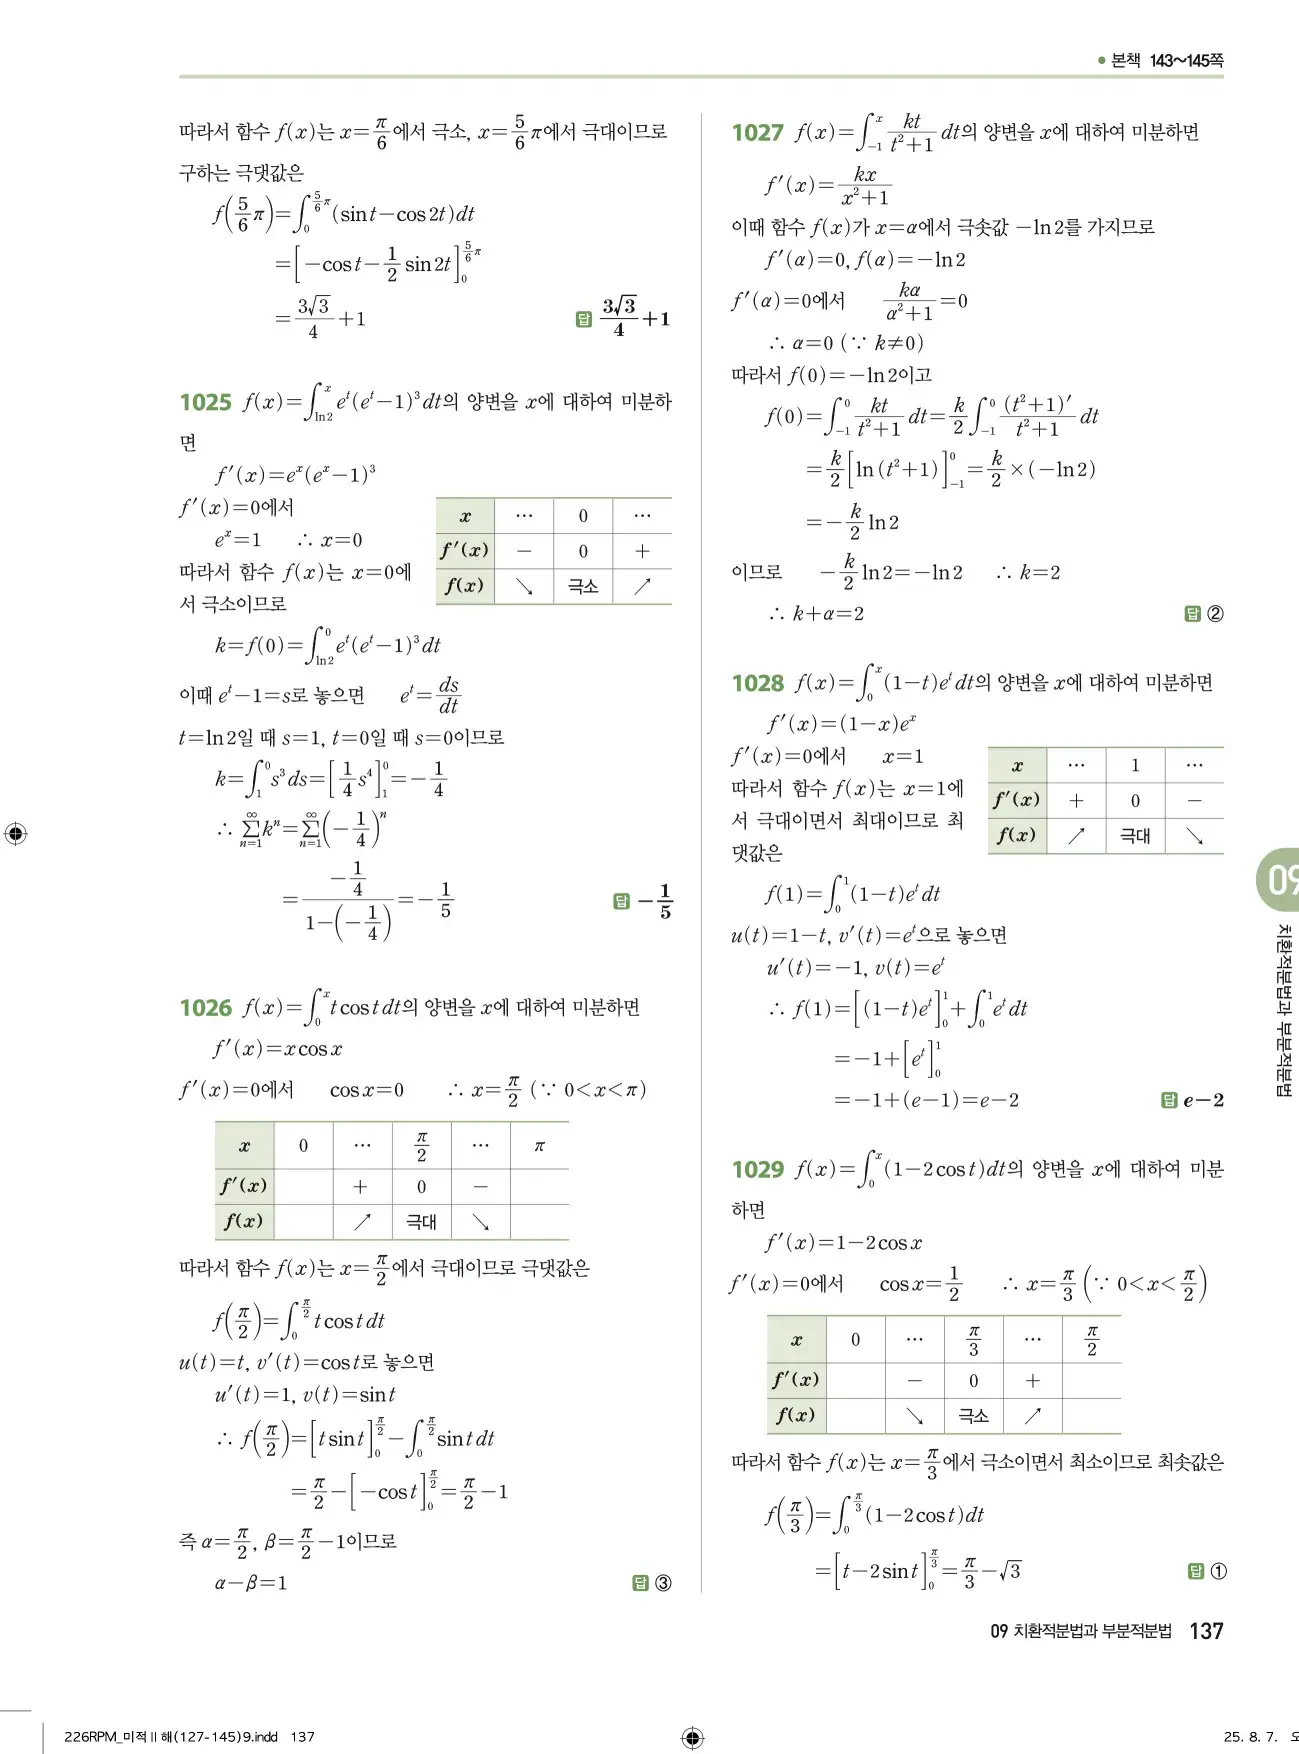 ● 본책 143~145쪽
따라서 함수 f(x)는 x=π/6에서 극소, x=5/6π에서 극대이므로
구하는 극댓값은
f(5/6π)=∫_0^{5/6π}(sin t-cos 2t)dt
=[-cos t-1/2 sin 2t]_0^{5/6π}
=3√3/4+1
답 3√3/4+1
1025 f(x)=∫_{ln2}^x e^t(e^t-1)^3dt의 양변을 x에 대하여 미분하
면
f'(x)=e^x(e^x-1)^3
f'(x)=0에서
e^x=1 ∴ x=0
따라서 함수 f(x)는 x=0에
서 극소이므로
x … 0 …
f'(x) - 0 +
f(x) ↘ 극소 ↗
k=f(0)=∫_{ln2}^0 e^t(e^t-1)^3dt
이때 e^t-1=s로 놓으면 e^t=ds/dt
t=ln2일 때 s=1, t=0일 때 s=0이므로
k=∫_1^0 s^3ds=[1/4 s^4]_1^0=-1/4
∴ ∑_{n=1}^∞ k^n=∑_{n=1}^∞(-1/4)^n
=(-1/4)/(1-(-1/4))=-1/5
답 -1/5
1026 f(x)=∫_0^x t cos t dt의 양변을 x에 대하여 미분하면
f'(x)=x cos x
f'(x)=0에서 cos x=0 ∴ x=π/2 (∵ 0<x<π)
x 0 … π/2 … π
f'(x) + 0 -
f(x) ↗ 극대 ↘
따라서 함수 f(x)는 x=π/2에서 극대이므로 극댓값은
f(π/2)=∫_0^{π/2} t cos t dt
u(t)=t, v'(t)=cos t로 놓으면
u'(t)=1, v(t)=sin t
∴ f(π/2)=[t sin t]_0^{π/2}-∫_0^{π/2} sin t dt
=π/2-[-cos t]_0^{π/2}=π/2-1
즉 α=π/2, β=π/2-1이므로
α-β=1
답 ③
1027 f(x)=∫_{-1}^x kt/(t^2+1) dt의 양변을 x에 대하여 미분하면
f'(x)=kx/(x^2+1)
이때 함수 f(x)가 x=α에서 극솟값 -ln2를 가지므로
f'(α)=0, f(α)=-ln2
f'(α)=0에서 kα/(α^2+1)=0
∴ α=0 (∵ k≠0)
따라서 f(0)=-ln2이고
f(0)=∫_{-1}^0 kt/(t^2+1) dt=k/2∫_{-1}^0 (t^2+1)'/(t^2+1) dt
=k/2[ln(t^2+1)]_{-1}^0=k/2×(-ln2)
=-k/2 ln2
이므로 -k/2 ln2=-ln2 ∴ k=2
∴ k+α=2
답 ②
1028 f(x)=∫_0^x(1-t)e^t dt의 양변을 x에 대하여 미분하면
f'(x)=(1-x)e^x
f'(x)=0에서 x=1
따라서 함수 f(x)는 x=1에
서 극대이면서 최대이므로 최
댓값은
x … 1 …
f'(x) + 0 -
f(x) ↗ 극대 ↘
f(1)=∫_0^1(1-t)e^t dt
u(t)=1-t, v'(t)=e^t으로 놓으면
u'(t)=-1, v(t)=e^t
∴ f(1)=[(1-t)e^t]_0^1+∫_0^1 e^t dt
=-1+[e^t]_0^1
=-1+(e-1)=e-2
답 e-2
1029 f(x)=∫_0^x(1-2cos t)dt의 양변을 x에 대하여 미분
하면
f'(x)=1-2cos x
f'(x)=0에서 cos x=1/2 ∴ x=π/3 (∵ 0<x<π/2)
x 0 … π/3 … π/2
f'(x) - 0 +
f(x) ↘ 극소 ↗
따라서 함수 f(x)는 x=π/3에서 극소이면서 최소이므로 최솟값은
f(π/3)=∫_0^{π/3}(1-2cos t)dt
=[t-2sin t]_0^{π/3}=π/3-√3
답 ①
09
치환적분법과 부분적분법
09 치환적분법과 부분적분법 137
226RPM_미적Ⅱ해(127-145)9.indd 137
25. 8. 7.